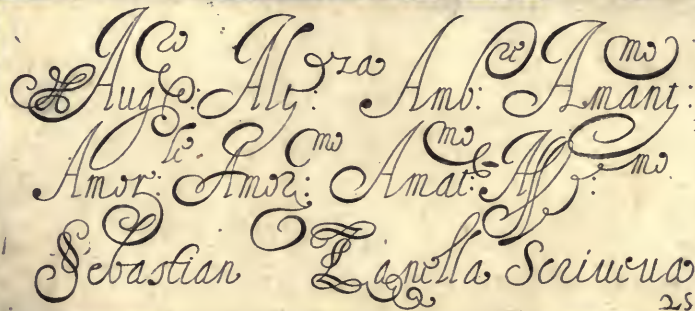 Aug:co Alt:za Amb:re Amant:mo
Amor:le Amor:mo Amat:mo Aff:mo
Sebastian Zanella Scriueua
25